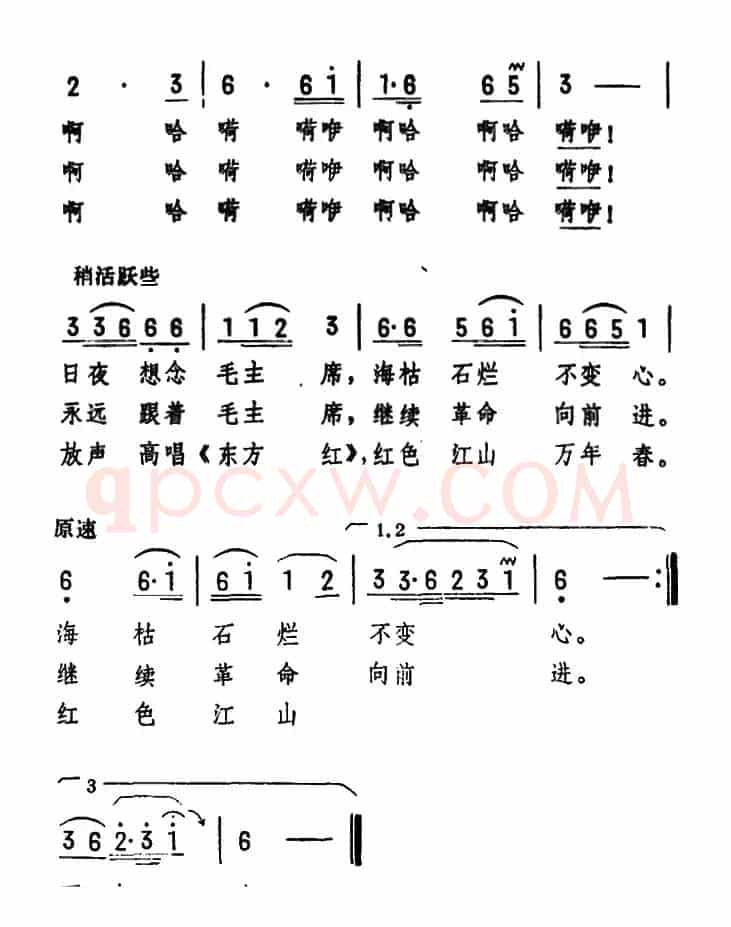 2 · 3 | 6 · 6 i | 1·6 6 5 | 3 —— |
啊 哈 嗬 嗬咿 啊哈 啊哈 嗬咿！
啊 哈 嗬 嗬咿 啊哈 啊哈 嗬咿！
啊 哈 嗬 嗬咿 啊哈 啊哈 嗬咿！
稍活跃些
3 3 6 6 6 | 1 1 2 3 | 6·6 5 6 i | 6 6 5 1 |
日夜 想念 毛主 席，海枯 石烂 不变 心。
永远 跟着 毛主 席，继续 革命 向前 进。
放声 高唱《东方 红》，红色 江山 万年 春。
qpcxw.COM
原速 1.2
6 6·i | 6 i 1 2 | 3 3·6 2 3 1 | 6 —— :||
海 枯 石 烂 不变 心。
继 续 革 命 向前 进。
红 色 江 山
3
3 6 2·3 i | 6 —— ||